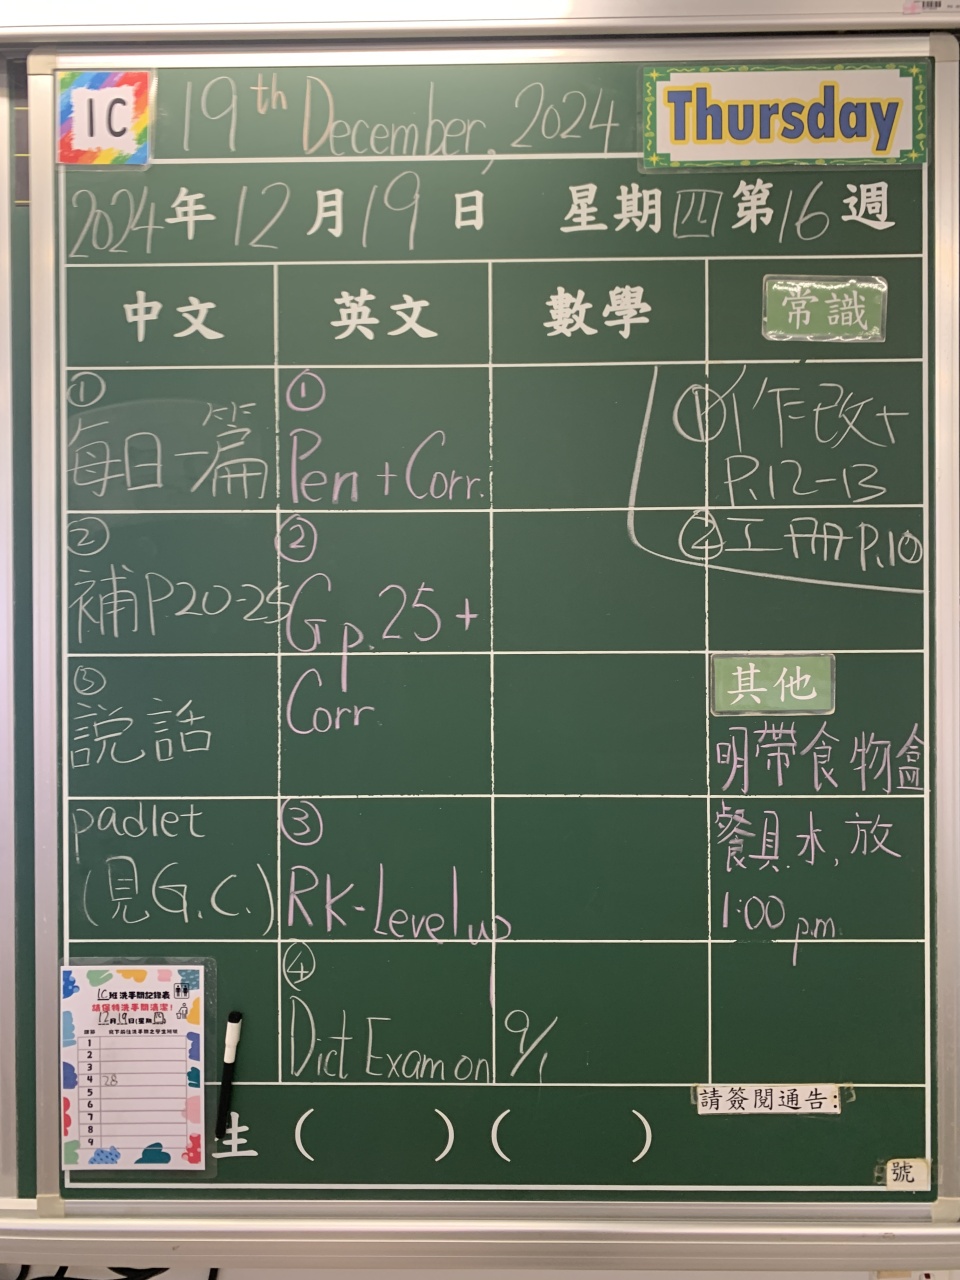 1C
19th December, 2024
Thursday
2024年12月19日 星期四第16週
中文
英文
數學
常識
①
每日一篇
②
補P20-25
③
説話
padlet
(見G.C.)
①
Pen + Corr.
②
G p.25 +
Corr
③
RK-Level up
④
Dict Exam on 9/1
①作改+
P.12-13
②工冊P.10
其他
明帶食物盒
餐具.水,放
1:00 p.m.
1C班洗手間記錄表
請保持洗手間清潔!
12月19日(星期四)
1
2
3
4 28
5
6
7
8
9
生 ( ) ( )
請簽閱通告:
號